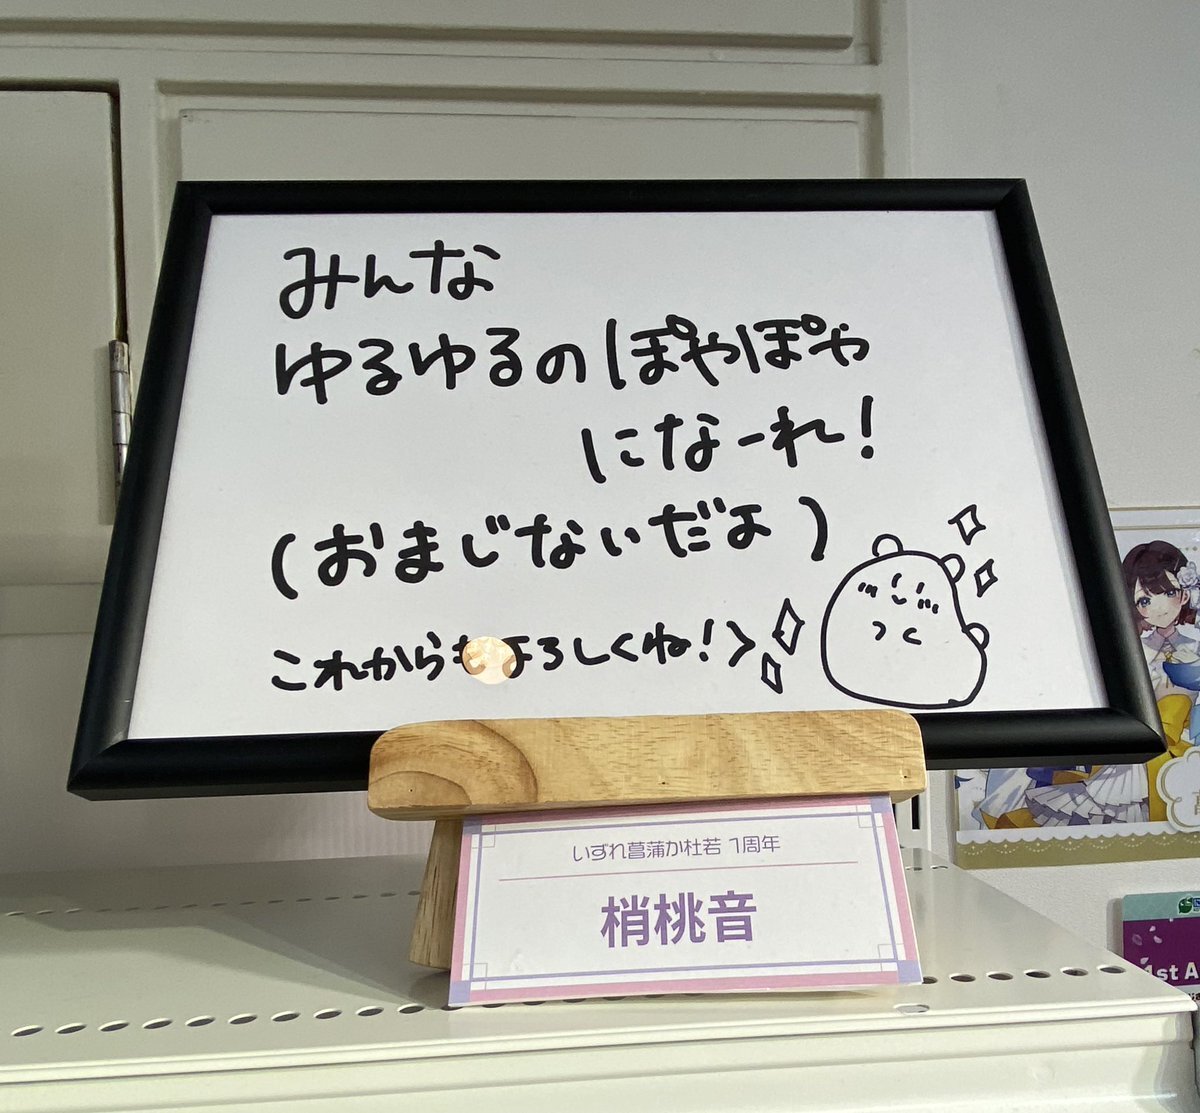 みんな
ゆるゆるのぽやぽや
になーれ!
(おまじないだよ)
これからもよろしくね!
いずれ菖蒲か杜若 1周年
梢桃音
1st A